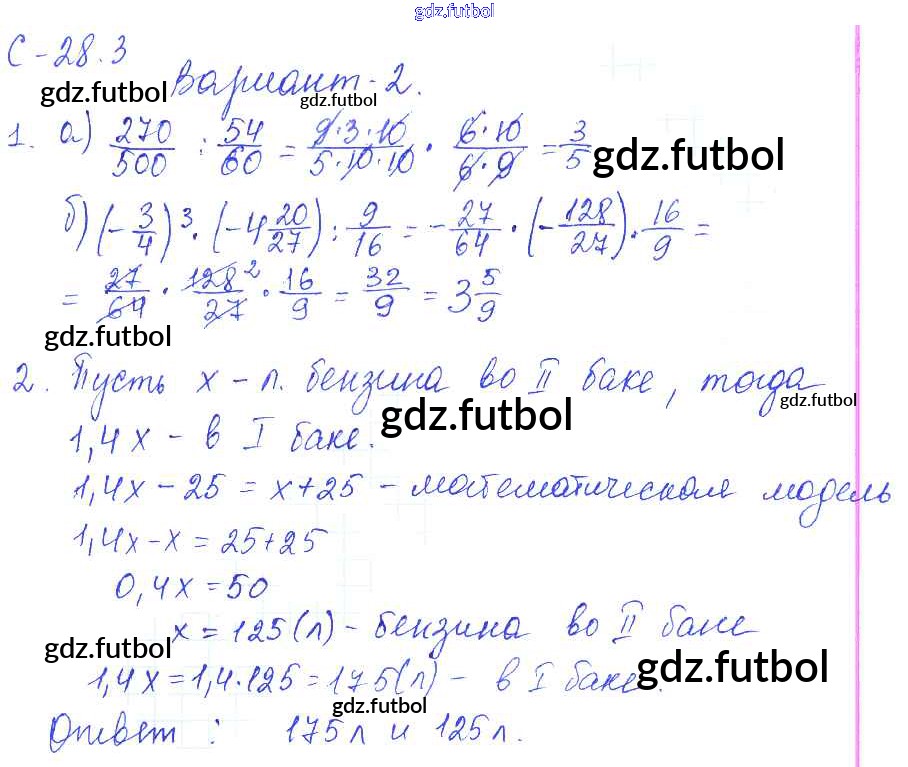 gdz.futbol
С-28.3
gdz.futbol Вариант-2. gdz.futbol
1. а) 270/500 : 54/60 = 9·3·10/5·10·10 · 6·10/6·9 = 3/5 gdz.futbol
б) (-3/4)³ · (-4 20/27) : 9/16 = -27/64 · (-128/27) · 16/9 =
= 27/64 · 128²/27 · 16/9 = 32/9 = 3 5/9
gdz.futbol
2. Пусть x - л. бензина во II баке, тогда
gdz.futbol
1,4x - в I баке. gdz.futbol
1,4x - 25 = x+25 - математическая модель
1,4x-x = 25+25
0,4x = 50
x = 125(л) - бензина во II баке
gdz.futbol
1,4x = 1,4·125 = 175(л) - в I баке. gdz.futbol
gdz.futbol
Ответ : 175л и 125л.